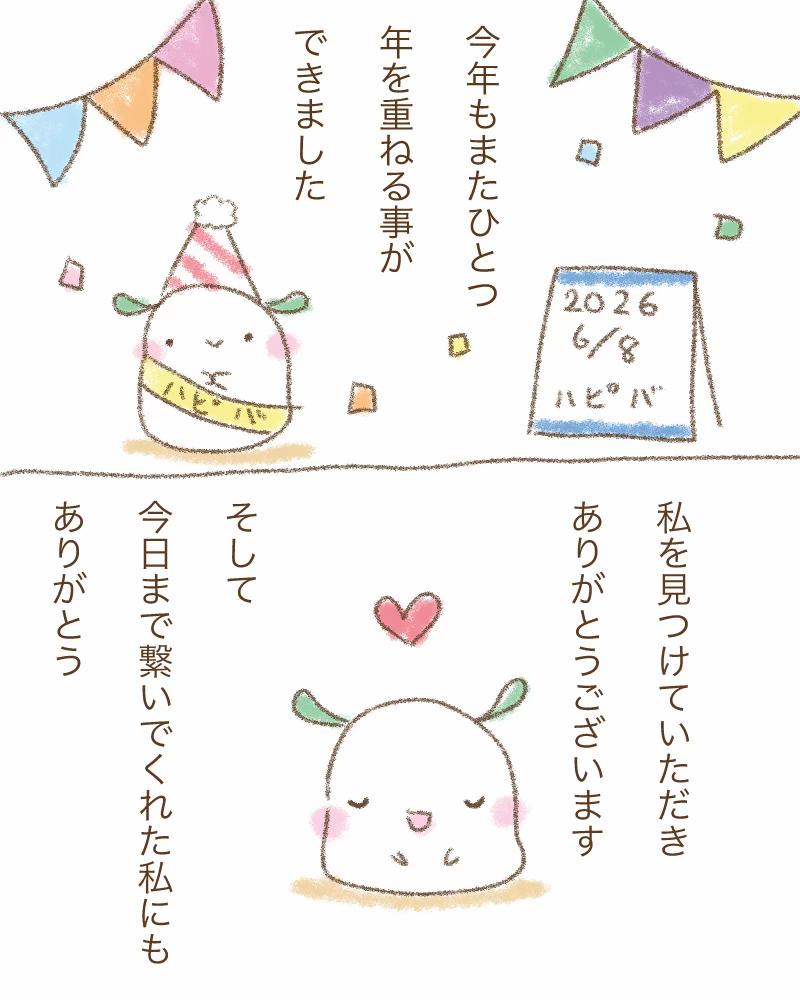 今年もまたひとつ
年を重ねる事が
できました
ハピバ
2026
6/8
ハピバ
私を見つけていただき
ありがとうございます
そして
今日まで繋いでくれた私にも
ありがとう